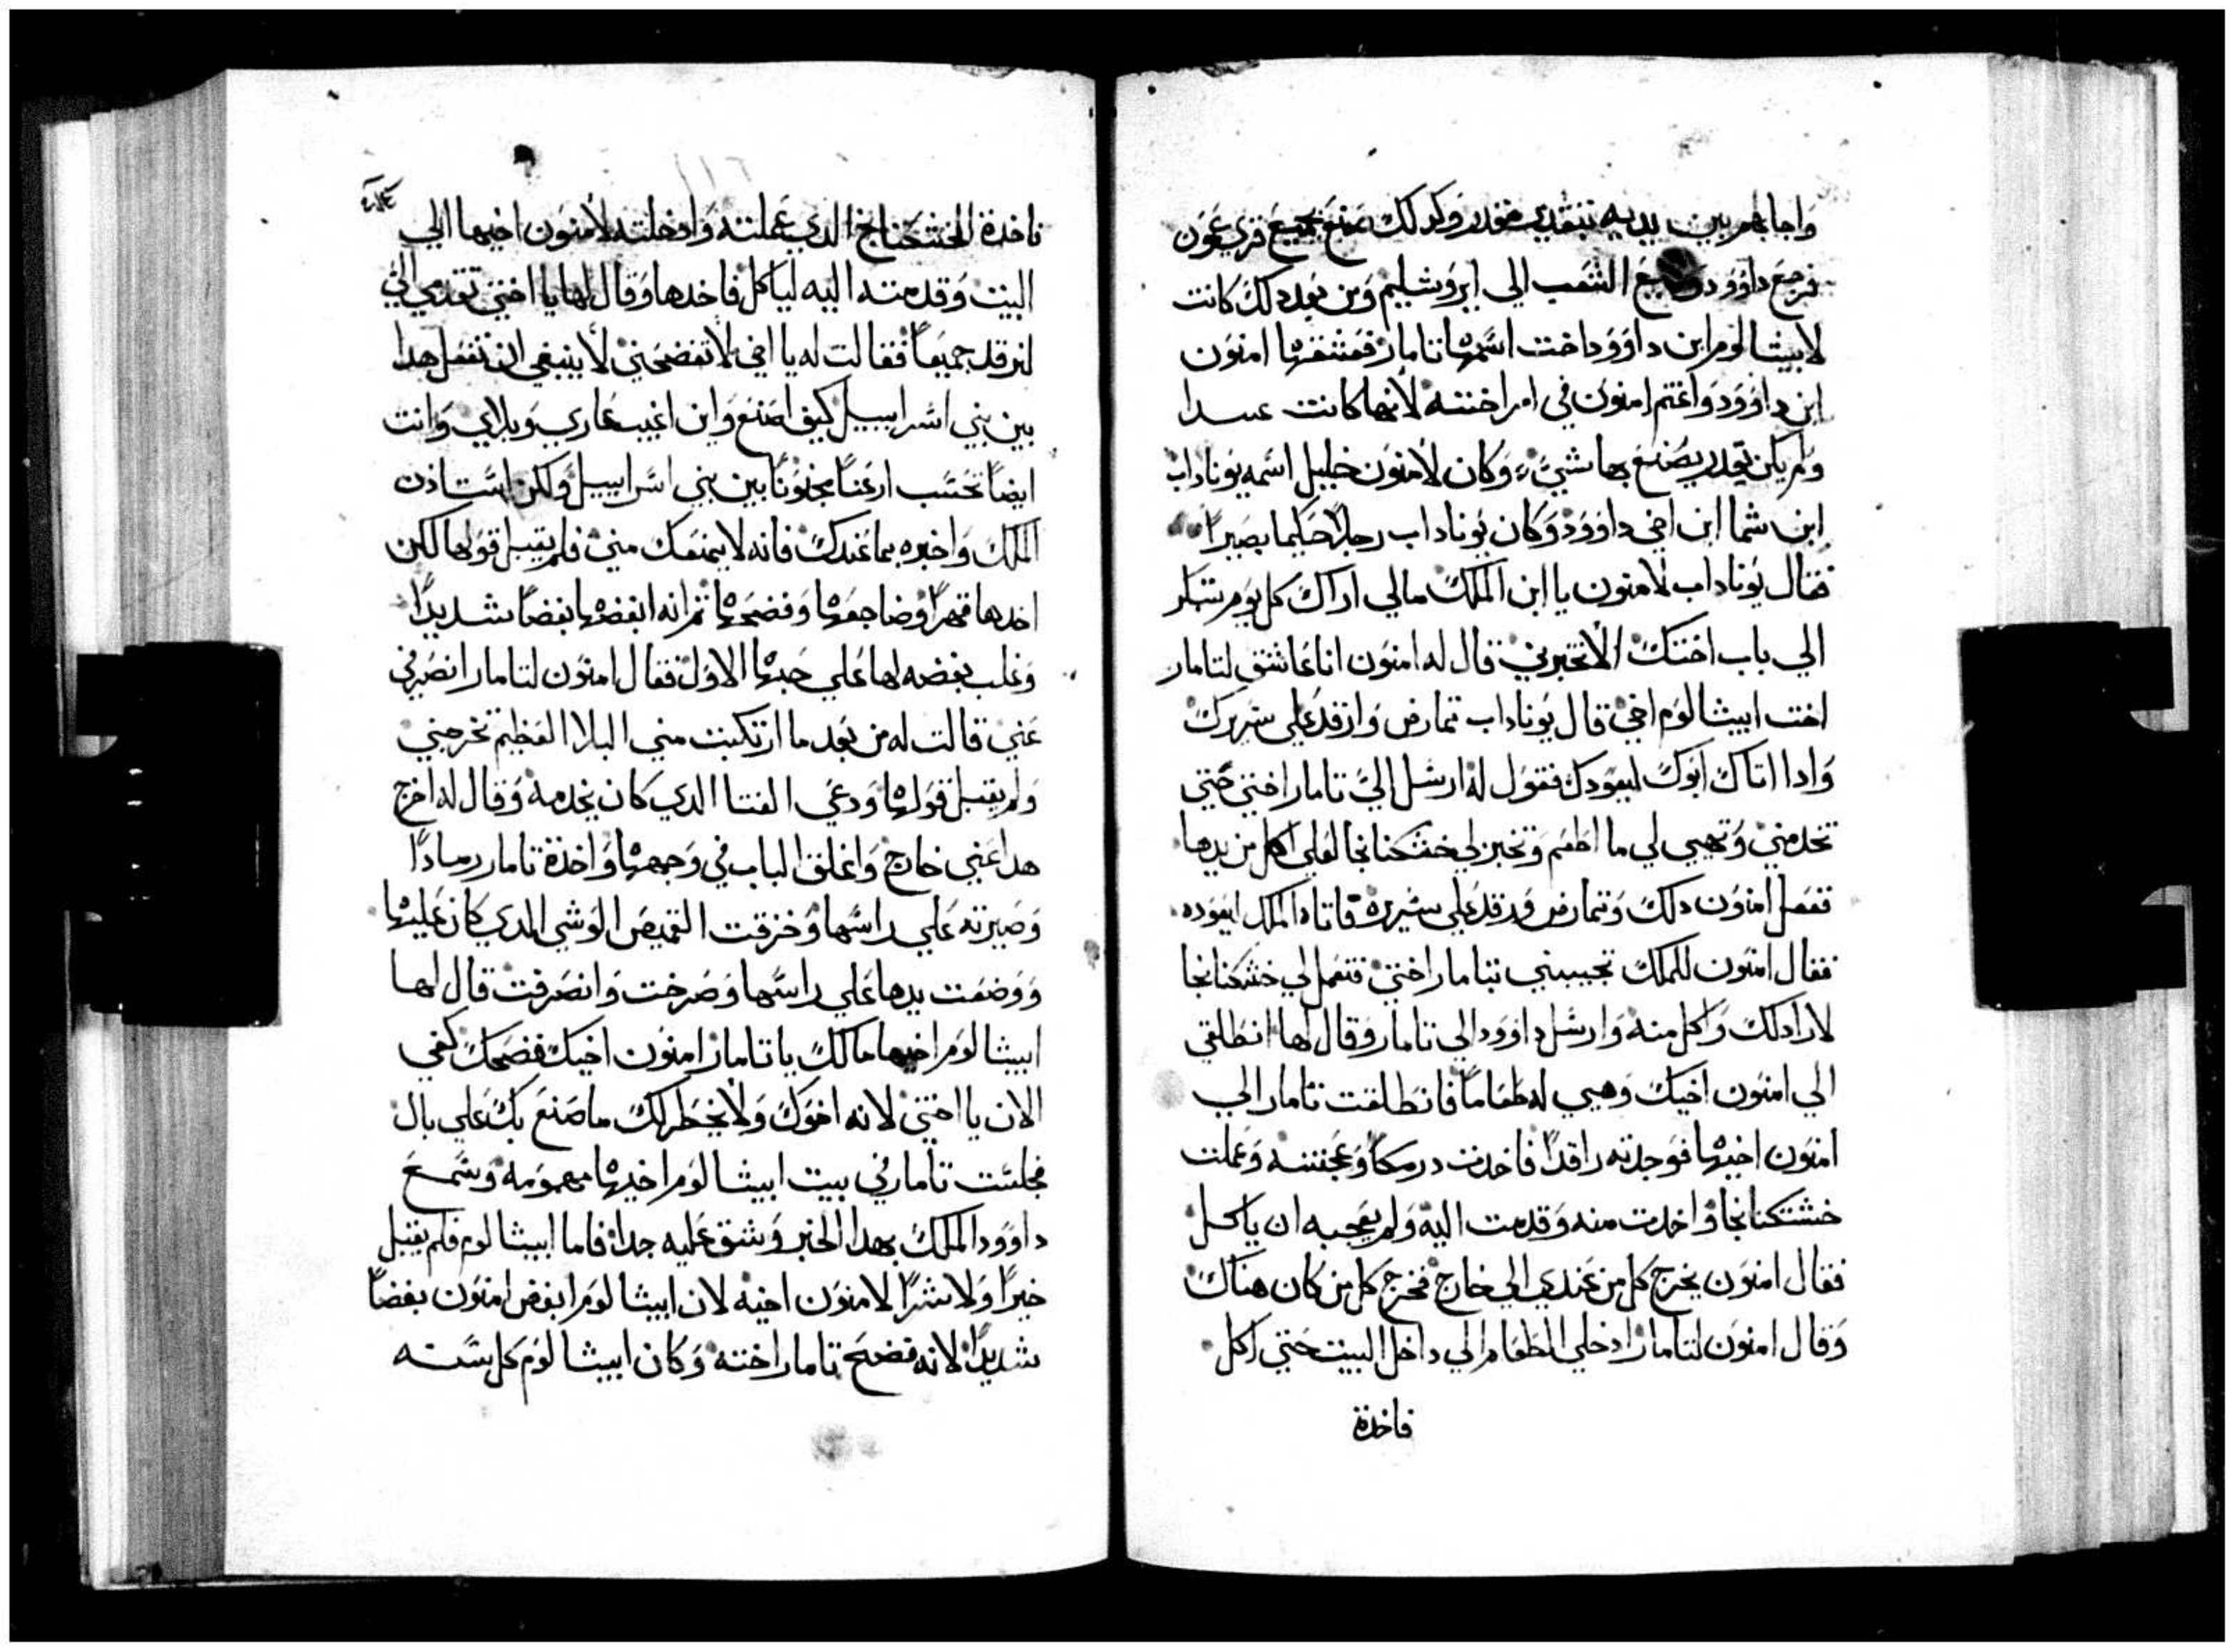 واجابهم بين يديه بتقدير مقدر وكدلك صنع بجميع قري عمون
فرجع داوود وجميع الشعب الي ايروشليم ومن بعد دلك كانت
لابيشالوم ابن داوود اخت اسمها تامار فعشقها امنون
ابن داوود واغتم امنون في امر اخته لانها كانت عدرا
ولم يكن يقدر يصنع بها شيء وكان لامنون خليل اسمه يوناداب
ابن شما ابن اخي داوود وكان يوناداب رجلا حكيما بصيرا
فقال يوناداب لامنون يا ابن الملك مالي اراك كل يوم تبكر
الي باب اختك الا تخبرني قال له امنون انا عاشق لتامار
اخت ابيشالوم اخي قال يوناداب تمارض وارقد علي سريرك
وادا اتاك ابوك ليعودك فقول له ارسل الي تامار اختي حتي
تخدمني وتهيي لي ما اطعم وتخبز لي خشكنانجا لعلي اكل من يدها
ففعل امنون دلك وتمارض ورقد علي سريره فاتاه الملك ليعوده
فقال امنون للملك تجيبني بتامار اختي فتعمل لي خشكنانجا
لارا دلك واكل منه وارسل داوود الي تامار وقال لها انطلقي
الي امنون اخيك وهيي له طعاما فانطلقت تامار الي
امنون اخيها فوجدته راقدا فاخدت درمكا وعجنته وعملت
خشتكنانجا واخدت منه وقدمت اليه ولم يعجبه ان ياكل
فقال امنون يخرج كل من عندي الي خارج فخرج كل من كان هناك
وقال امنون لتامار ادخلي الطعام الي داخل البيت حتي اكل
فاخدة
فاخدة الخشكنانج الدي عملته وادخلته لامنون اخيها الي
البيت وقدمته اليه لياكل فاخدها وقال لها يا اختي تقدمي الي
لنرقد جميعا فقالت له يا اخي لا تفضحني لا ينبغي ان تفعل هدا
بين بني اسراييل كيف اصنع واين اغيب عاري وبلاي وانت
ايضا تحسب ارعنا مجنونا بين بني اسراييل ولكن استاذن
الملك واخبره بما عندك فانه لا يمنعك مني فلم يقبل قولها لكن
اخدها قهرا وضاجعها وفضحها ثم انه ابغضها بغضا شديدا
وغلب بغضه لها علي حبها الاول فقال امنون لتامار انصرفي
عني قالت له من بعد ما ارتكبت مني البلا العظيم تخرجني
ولم يقبل قولها ودعي الفتا الدي كان يخدمه وقال له اخرج
هدا عني خارج واغلق الباب في وجهها واخدة تامار رمادا
وصيرته علي راسها وخزقت القميص الوشي الدي كان عليها
ووضعت يدها علي راسها وصرخت وانصرفت قال لها
ابيشالوم اخيها مالك يا تامار امنون اخيك فضحك كفي
الان يا اختي لانه اخوك ولا يخطر لك ما صنع بك علي بال
فجلست تامار في بيت ابيشالوم اخيها مهمومة وسمع
داوود الملك بهدا الخبر وشق عليه جدا فاما ابيشالوم فلم يقبل
خيرا ولا شرا لامنون اخيه لان ابيشالوم ابغض امنون بغضا
شديدا لانه فضح تامار اخته وكان ابيشالوم كل سنه